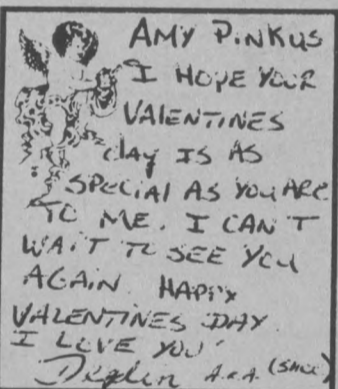 AMY PINKUS
I HOPE YOUR
VALENTINES
dAY IS AS
SPECIAL AS YOU ARE
TO ME. I CAN'T
WAIT TO SEE YOU
AGAIN. HAPPY
VALENTINES DAY.
I LOVE YOU
A.K.A.